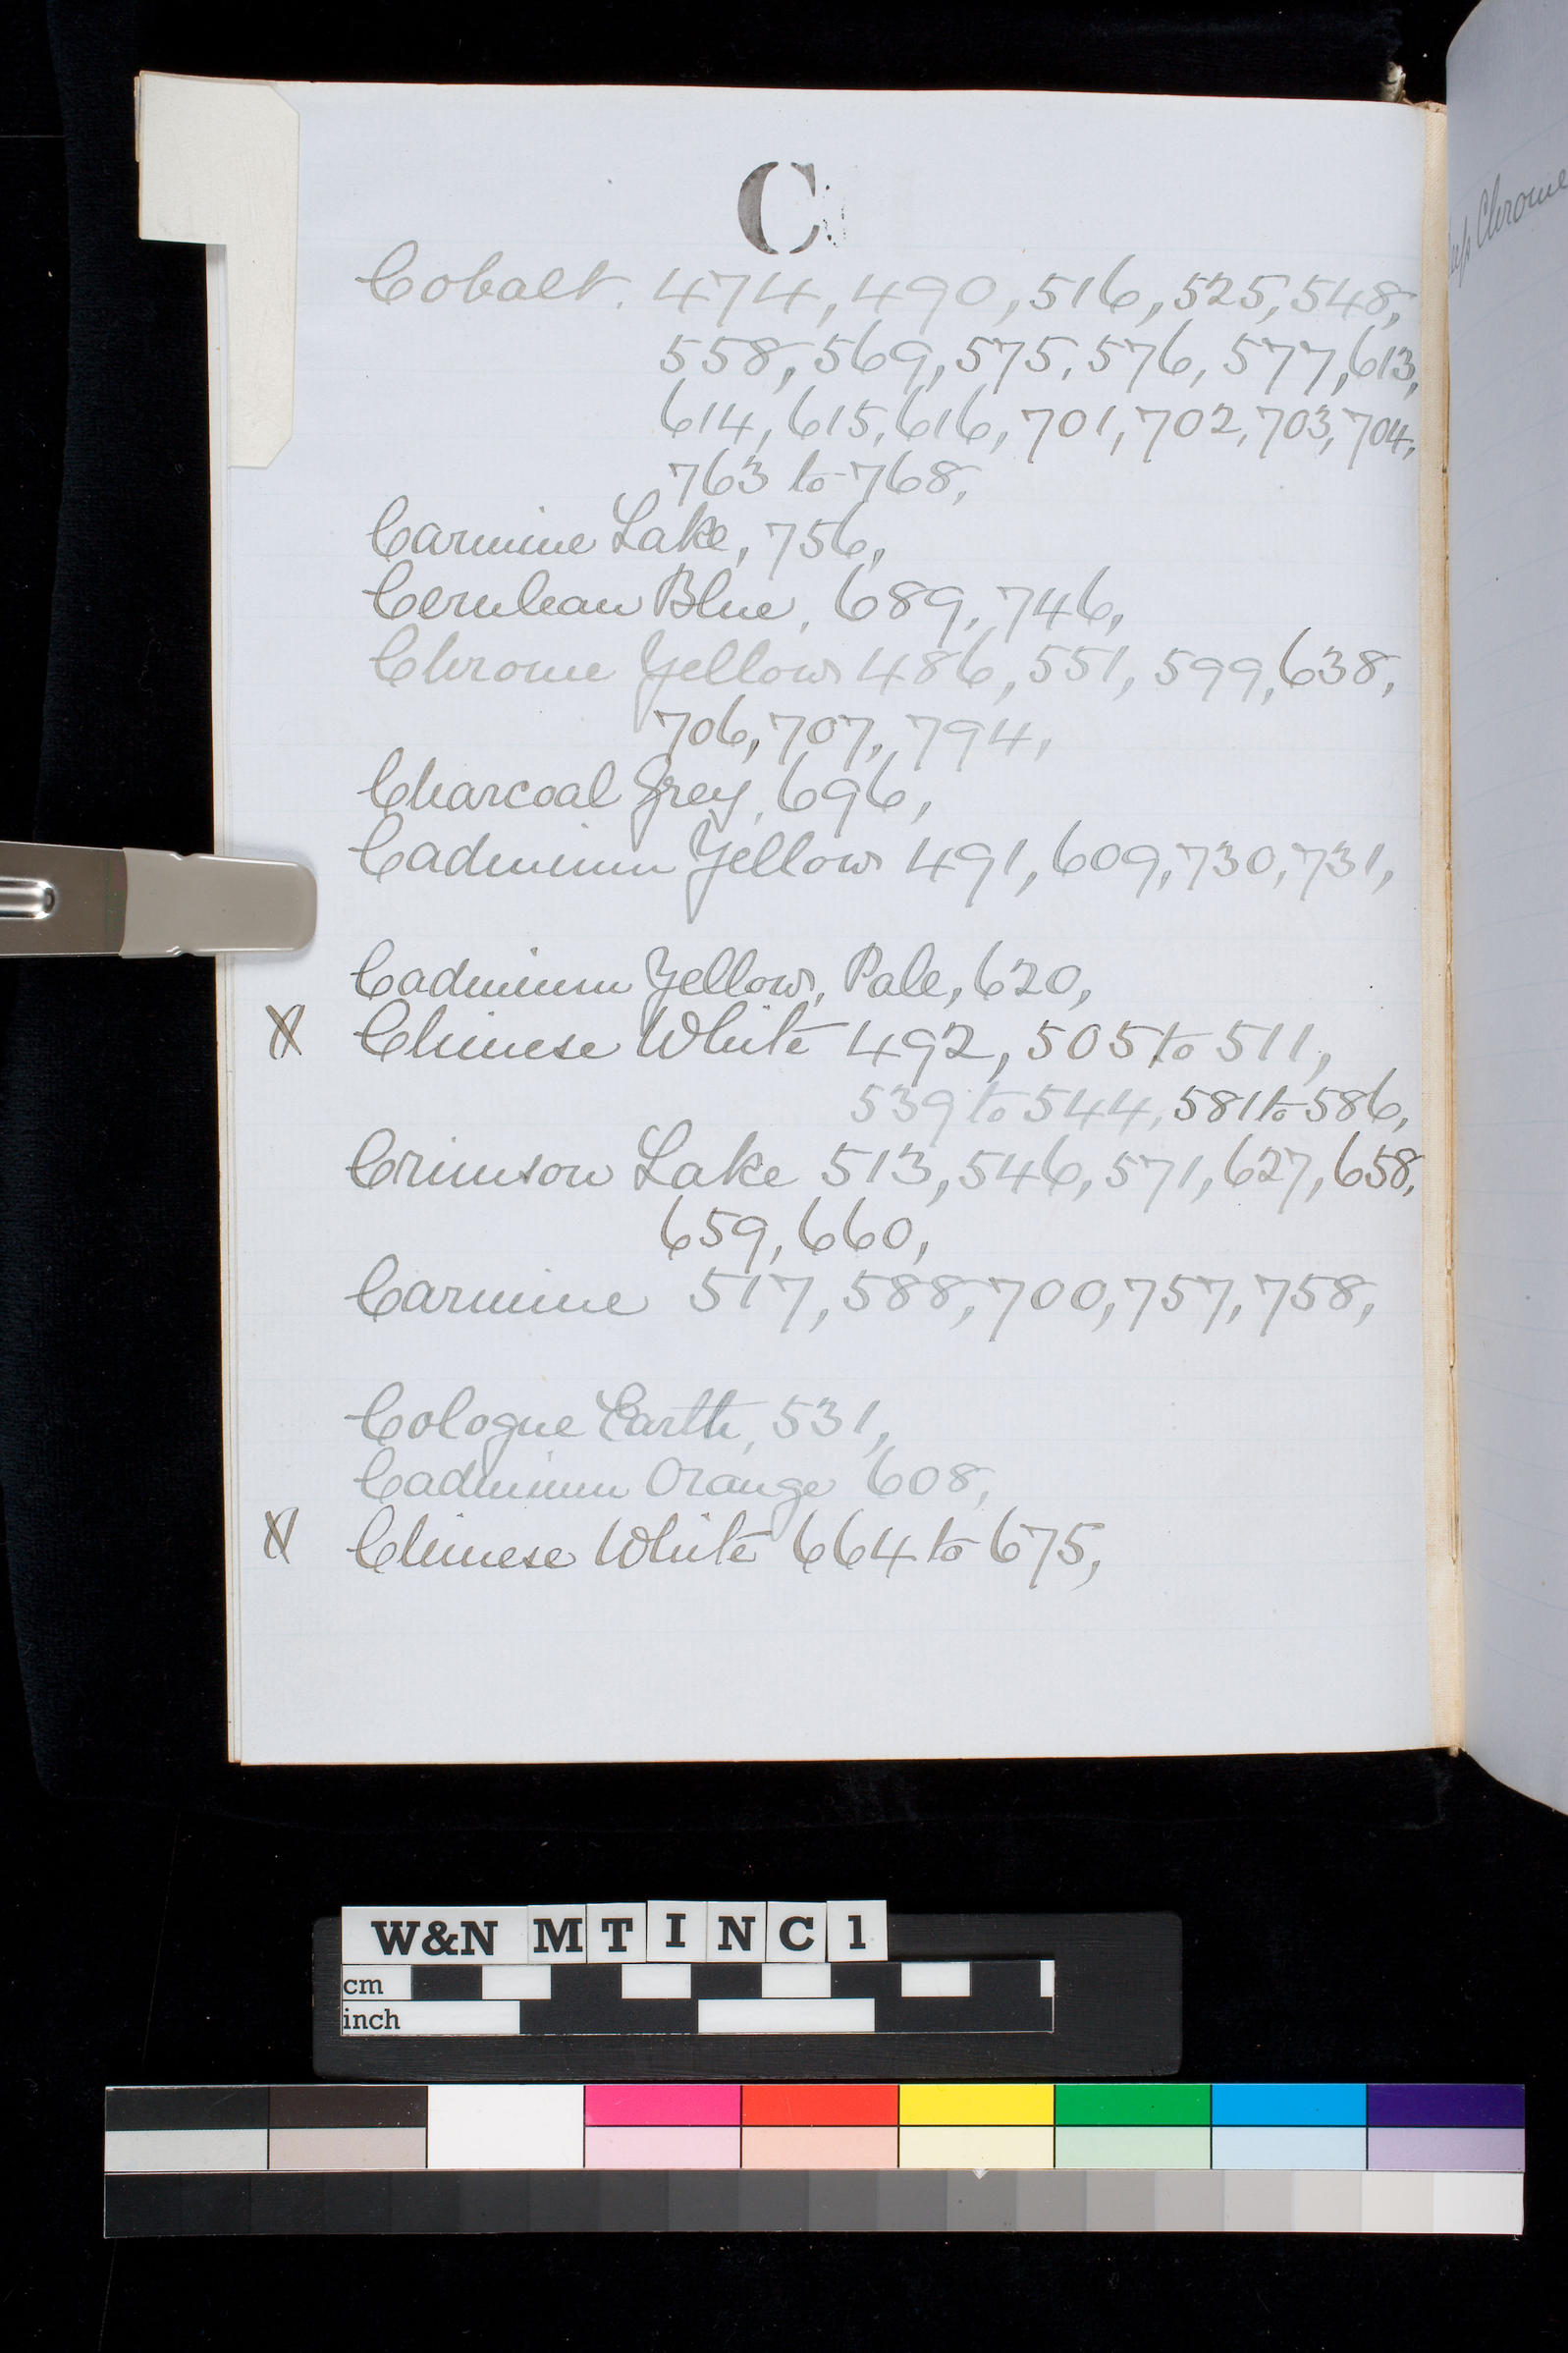 C
Cobalt. 474, 490, 516, 525, 548,
558, 569, 575, 576, 577, 613,
614, 615, 616, 701, 702, 703, 704,
763 to 768,
Carmine Lake, 756,
Cerulean Blue, 689, 746,
Chrome Yellow 486, 551, 599, 638,
706, 707, 794,
Charcoal Grey, 696,
Cadmium Yellow 491, 609, 730, 731,
Cadmium Yellow, Pale, 620,
X Chinese White 492, 505 to 511,
539 to 544, 581 to 586,
Crimson Lake 513, 546, 571, 627, 658,
659, 660,
Carmine 517, 588, 700, 757, 758,
Cologne Earth, 531,
Cadmium Orange 608,
X Chinese White 664 to 675,
Chrome
W&N M T I N C 1
cm
inch